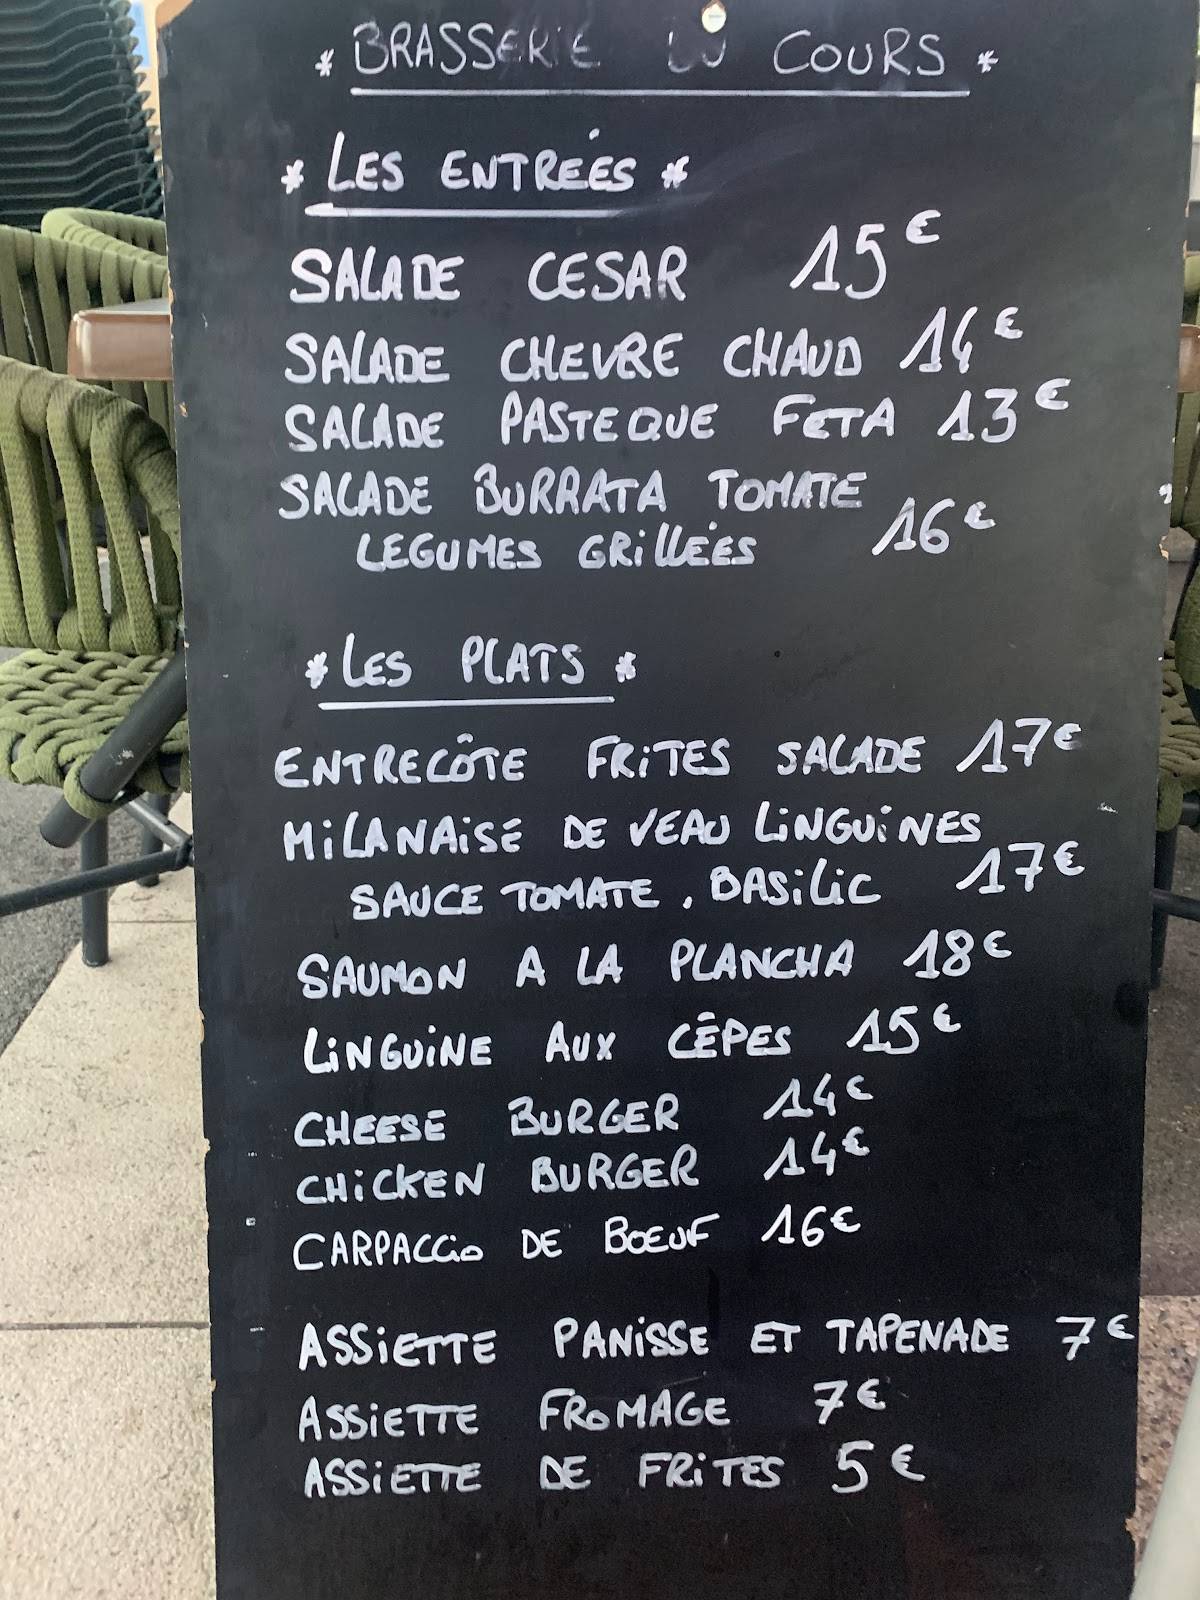 * BRASSERIE DU COURS *
* LES ENTRÉES *
SALADE CESAR 15€
SALADE CHEVRE CHAUD 14€
SALADE PASTEQUE FETA 13€
SALADE BURRATA TOMATE
LEGUMES GRILLÉES 16€
* LES PLATS *
ENTRECÔTE FRITES SALADE 17€
MILANAISE DE VEAU LINGUINES
SAUCE TOMATE, BASILIC 17€
SAUMON A LA PLANCHA 18€
LINGUINE AUX CÊPES 15€
CHEESE BURGER 14€
CHICKEN BURGER 14€
CARPACCIO DE BOEUF 16€
ASSIETTE PANISSE ET TAPENADE 7€
ASSIETTE FROMAGE 7€
ASSIETTE DE FRITES 5€